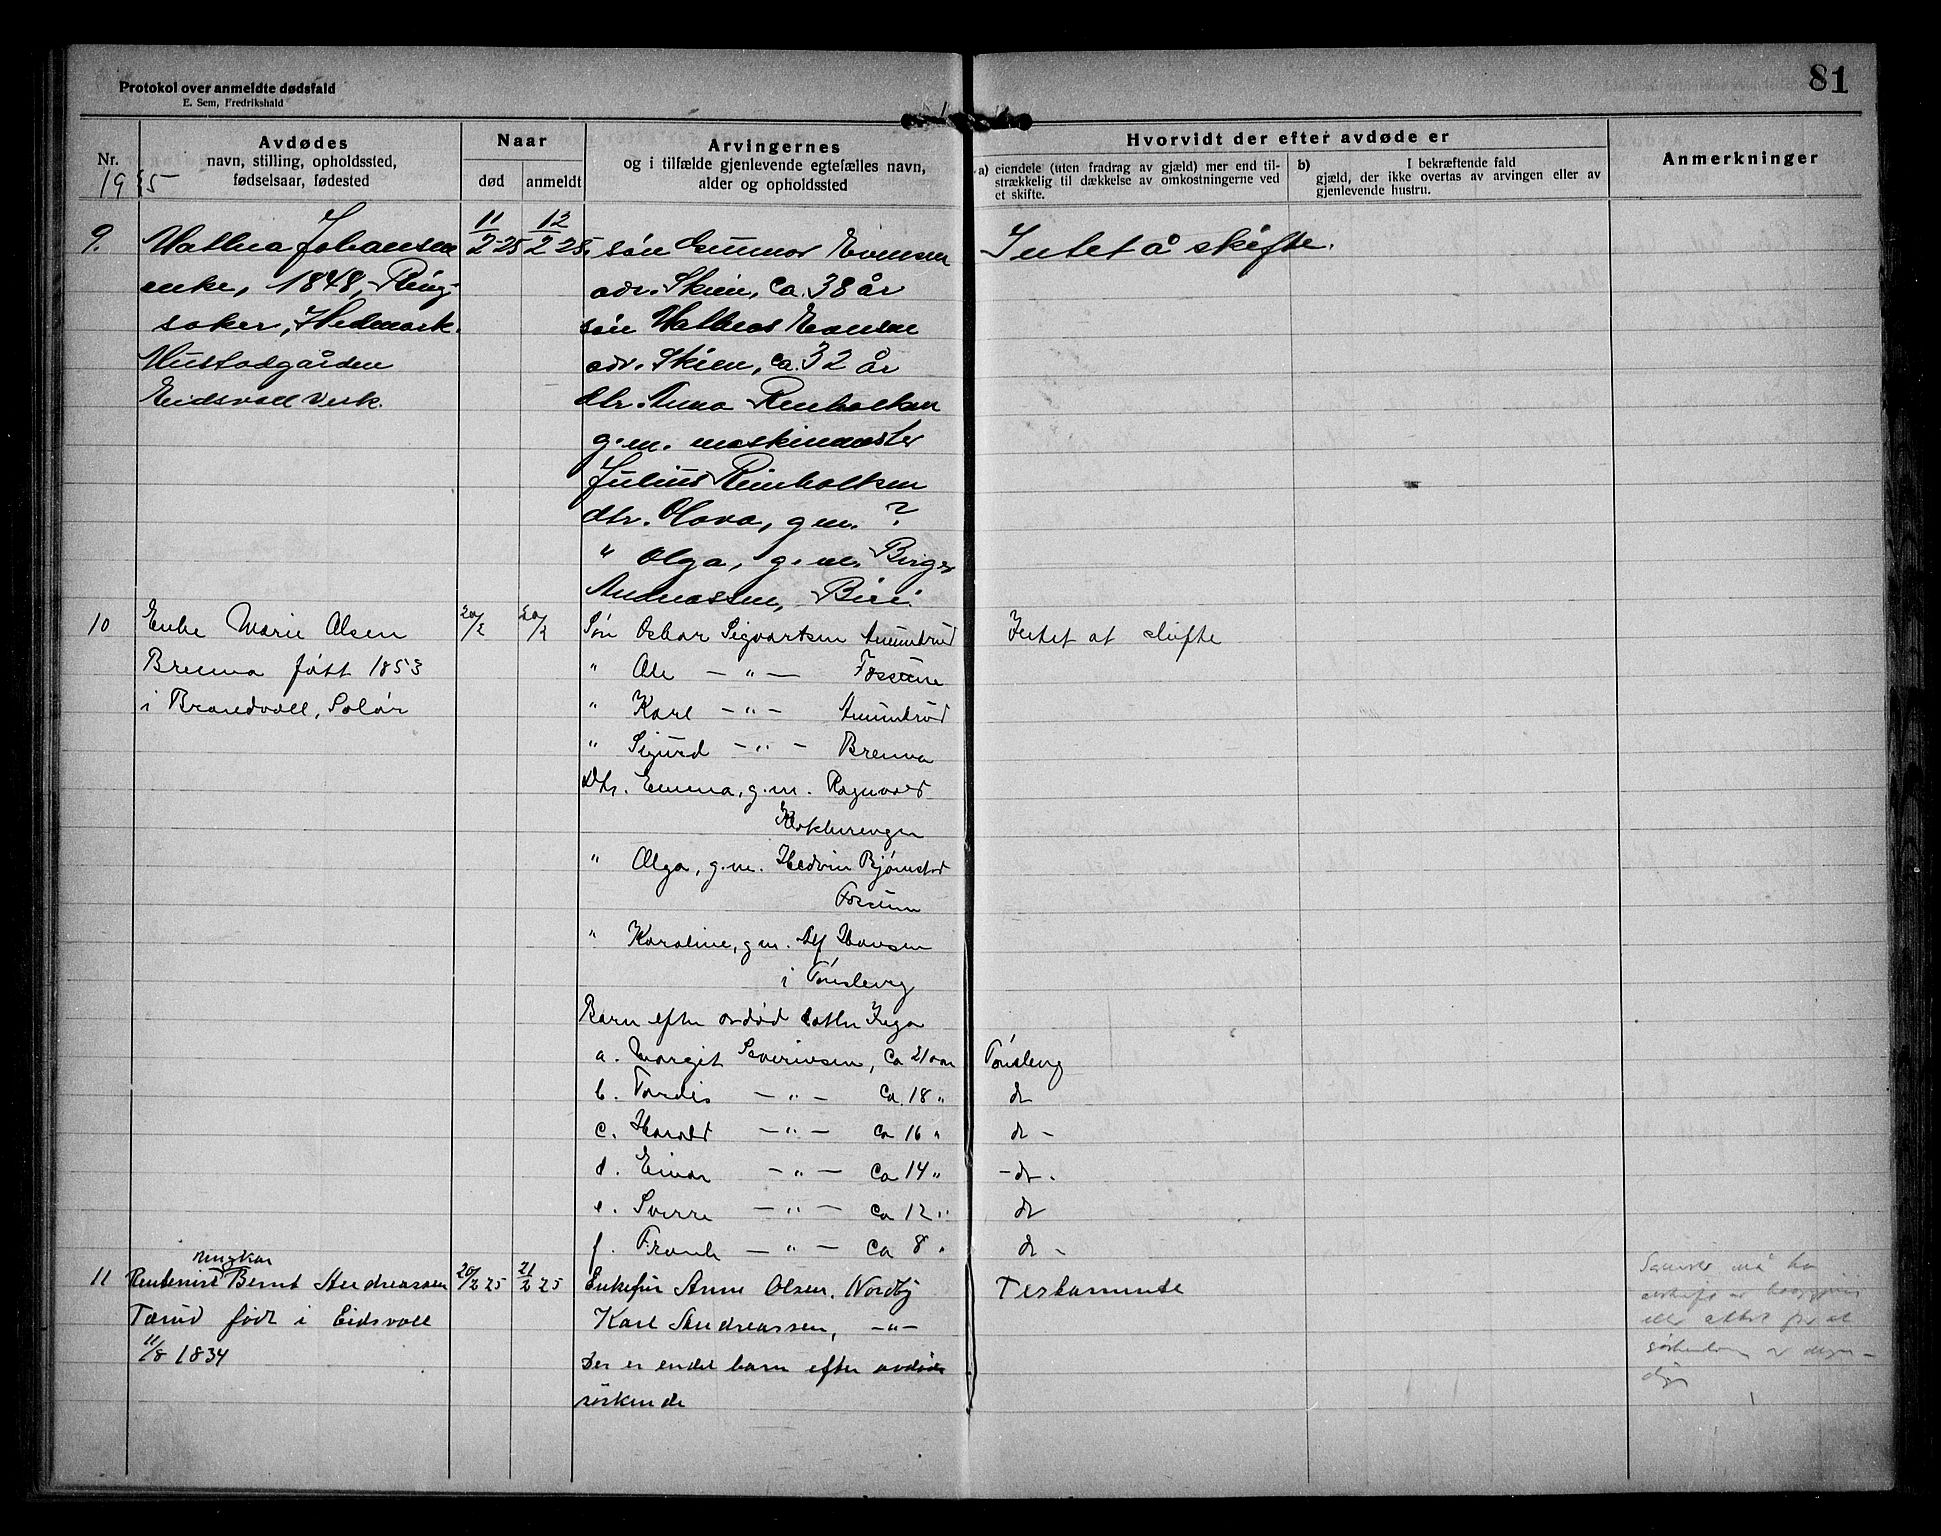 81
Protokol over anmeldte dødsfald
E. Sem, Fredrikshald
Nr.
Avdødes
navn, stilling, opholdssted,
fødselsaar, fødested
Naar
død
anmeldt
Arvingernes
og i tilfælde gjenlevende egtefælles navn,
alder og opholdssted
Hvorvidt der efter avdøde er
a) eiendele (uten fradrag av gjæld) mer end til-
strækkelig til dækkelse av omkostningerne ved
et skifte.
b) I bekræftende fald
gjæld, der ikke overtas av arvingen eller av
gjenlevende hustru.
Anmerkninger
1925
9.
Mathea Johansen
enke, 1848, Ring-
saker, Hedmark.
Mustadgården
Eidsvoll verk.
11/2-25
12/2 25.
søn Gunnar Evensen
adr. Skien, ca. 38 år
søn Mathias Evensen
adr. Skien, ca. 32 år
dtr. Anna Reinholtsen
g.m. maskinmester
Julius Reinholtsen
dtr. Olava, g.m. ?
" Olga, g.m. Birger
Andreassen, Biri.
Intet å skifte.
10
Enke Marie Olsen
Brenna født 1853
i Brandvoll, Solør
20/2
20/2
Søn Oskar Sigvartsen Amundrud
" Ole — " — Fossum
" Karl — " — Amundrud
" Sigurd — " — Brenna
Dtr. Emma, g.m. Ragnvald
" Olga, g.m. Hedvin Bjørnstad
Fossum
" Karoline, g.m. Alf Hansen
i Tønsberg
Barn efter avdød datter Inga
a. Margit Severinsen, ca 21 aar
b. Tordis — " — ca. 18 "
c. Harald — " — ca 16 "
d. Einar — " — ca 14 "
e. Sverre — " — ca 12 "
f. Frank — " — ca 8 "
Intet at skifte
Tønsberg
do
do -
- do -
do
do -
11
ungkar
Rentenist Bernt Andreassen
Tærud født i Eidsvoll
11/8 1834
20/2 25
21/2 25
Enkefru Anne Olsen, Nordby
Karl Andreassen, —"—
Der er endel barn efter avdøde
søskende
Testamente
må ha
eller attest for at